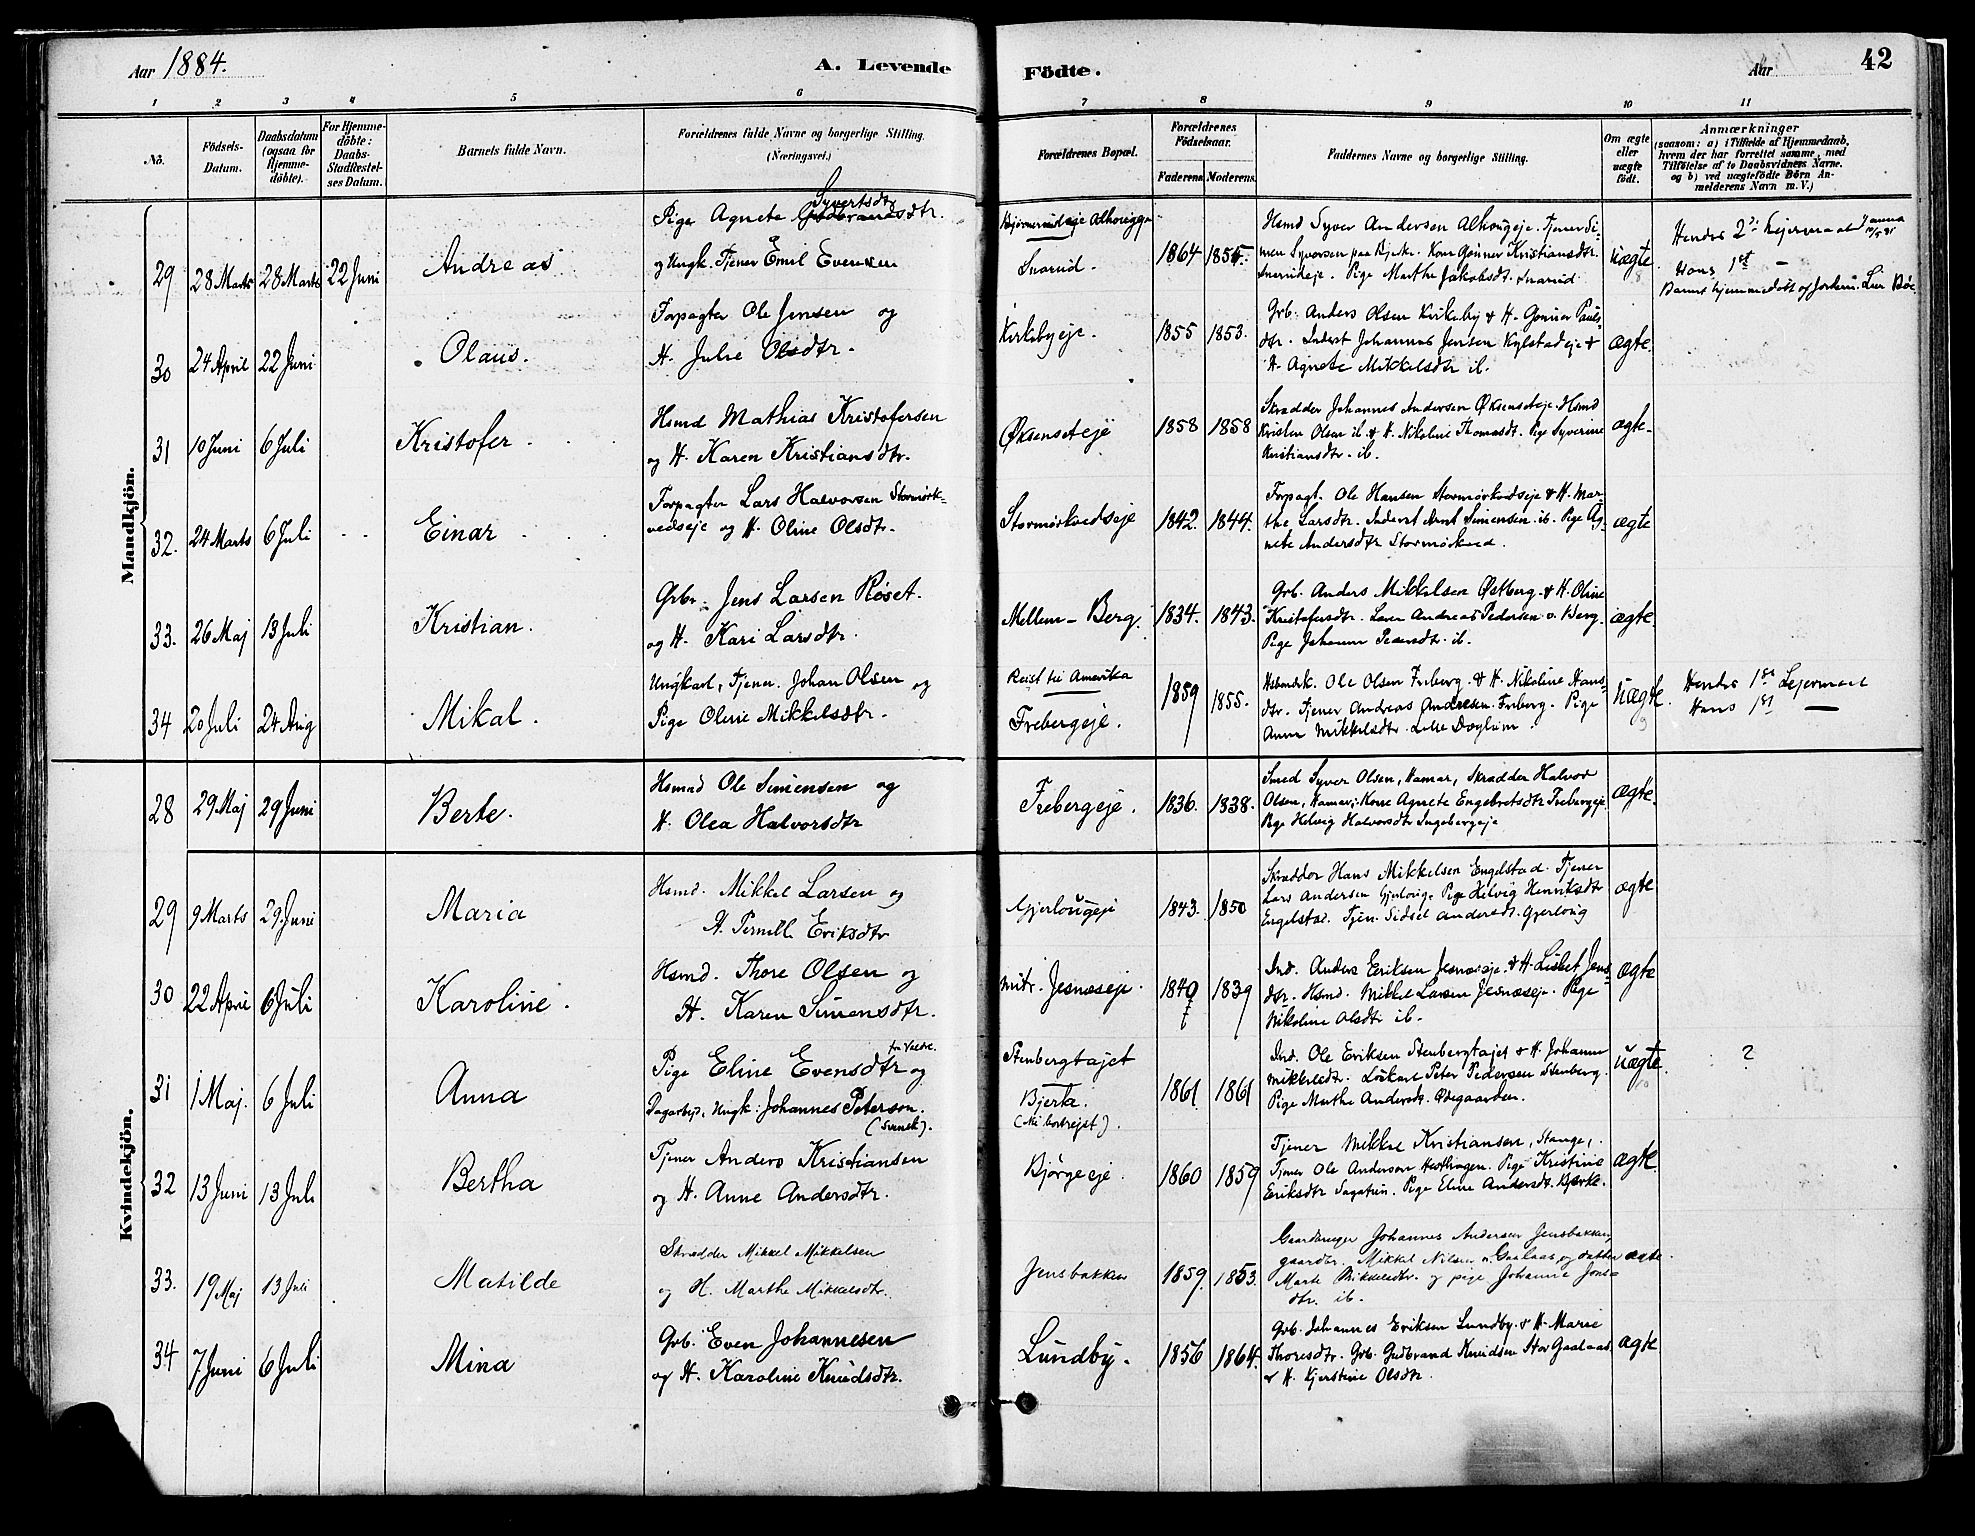 Aar 1884.
A. Levende
Födte.
Aar
42
1 2 3 4 5 6
7 8 9 10 11
No.
Födsels-
Datum.
Daabsdatum
(ogsaa for
Hjemme-
döbte).
For Hjemme-
döbte:
Daabs-
Stadfæstel-
ses Datum.
Barnets fulde Navn.
Forældrenes fulde Navne og borgerlige Stilling.
(Næringsvei.)
Forældrenes Bopæl.
Forældrenes
Födselsaar.
Faderens Moderens
Faddernes Navne og borgerlige Stilling.
Om ægte
eller
uægte
födt.
Anmærkninger
(saasom: a) i Tilfælde af Hjemmedaab,
hvem der har forrettet samme, med
Tilföielse af to Daabsvidners Navne.
og b) ved uægtefödte Börn An-
melderens Navn m. V.)
Mandkjön.
29 28 Marts 28 Marts 22 Juni Andreas
Syvertsdtr
Pige Agnete
og Ungk. Tjener Emil Evensen
Snarud.
1864 1855.
Hsmd Syver Andersen Alhougeje. Tjener Si-
men Syversen paa Bjerke. Kone Gunner Kristiansdtr.
Snarudeje. Pige Marthe Jakobsdt. Snarud
uægte
Hendes 2det Lejermaal
Hans 1st —
Barnet hjemmedøbt af Jordem.
30 24 April 22 Juni Olaus.
Forpagter Ole Jensen og
H. Julie Olsdtr.
Kirkebyeje.
1855 1853.
Grb. Anders Olsen Kirkeby & H. Gunnor Pauls-
dtr. Inderst Johannes Jensen Kylstadeje &
H. Agnete Mikkelsdtr ib.
ægte.
31 10 Juni 6 Juli Kristofer.
Hsmd Mathias Kristofersen
og H. Karen Kristiansdtr.
Øksenseteje
1858 1858
Skrædder Johannes Andersen Øksenseteje. Hsmd
Kristen Olsen ib. & H. Nikoline Thomasdt. Pige Syverine
Kristiansdtr. ib.
ægte.
32. 24 Marts 6 Juli Einar
Forpagter Lars Halvorsen Stormørk-
vedseje og H. Oline Olsdtr.
Stormørkvedseje
1842. 1844.
Forpagt. Ole Hansen Stormørkvedseje & H. Mar-
the Larsdtr. Inderst Arnt Simensen ib. Pige Ag-
nete Andersdtr Stormørkved.
ægte
33. 26 Maj 13 Juli Kristian.
Grbr. Jens Larsen Røset.
og H. Kari Larsdtr.
Mellem-Berg.
1834. 1843.
Grb. Anders Mikkelsen Østberg. & H. Oline
Kristofersdtr. Andreas Pedersen v. Berg.
Pige Johanne Pedersdtr. ib.
ægte.
34 20 Juli 24 Aug Mikal.
Ungkarl, Tjener. Johan Olsen og
Pige Oline Mikkelsdtr.
Reist til Amerika
Frebergeje.
1859 1855.
Ole Olsen Freberg. & H. Nikoline Hans-
dtr. Tjener Andreas Andresen Freberg. Pige
Anne Mikkelsdtr.
uægte.
Hendes 1ste Lejermaal
Hans 1st —
Kvindekjön.
28 29 Maj 29 Juni Berte.
Hsmnd Ole Simensen og
H. Olea Halvorsdtr
Frebergeje.
1836. 1838.
Smed Syver Olsen, Hamar, Skrædder Halvor
Olsen, Hamar, Kone Agnete Engebretsdtr Frebergeje
Pige Helvig Halvorsdtr Ingebergeje
ægte.
29 9 Marts 29 Juni Maria
Hsmd. Mikkel Larsen og
H. Pernille Eriksdtr
Gjerlougeje
1843. 1850
Skrædder Hans Mikkelsen Engelstad. Tjener
Lars Andersen Gjerloug. Pige Helvig Henriksdtr
Engelstad. Tjen. Sidsel Andersdt. Gjerloug
ægte
30 22 April 6 Juli Karoline.
Hsmd. Thore Olsen og
H. Karen Simensdtr.
Jesnæseje.
1840 1839
Ind. Anders Eriksen Jesnæseje & H. Lisbet Jens
dtr. Hsmd. Mikkel Larsen Jesnæseje. Pige
Nikoline Olsdtr ib.
ægte
31 1 Maj. 6 Juli Anna
fra Valdre.
Pige Eline Evensdtr og
Dagarbejd. Ungk. Johannes Peterson.
(Svensk).
Stenbergtajet
Bjerke.
1861 1861
Ind. Ole Eriksen Stenbergtajet & H. Johanne
Mikkelsdtr. Peter Pedersen Stenberg.
Pige Marthe Andersdt.
uægte.
?
32 13 Juni 13 Juli Bertha
Tjener Anders Kristiansen
og H. Anne Andersdtr.
Bjørgeeje.
1860 1859
Tjener Mikkel Kristiansen, Stange,
Tjener Ole Andersen Hesthagen. Pige Kristine
Eriksdtr Sagatun. Pige Eline Andersdt. Bjerke.
ægte.
33. 19 Maj 13 Juli Matilde
Skrædder Mikkel Mikkelsen
og H. Marthe Mikkelsdtr.
Jensbakken
1859. 1853.
Johannes Andersen Jensbakken,
gaardbr. Mikkel Nilsen v. Gaalaas og datter
Marte Mikkelsdtr. og pige Johanne Jons-
dtr. ib.
ægte.
34 7 Juni 6 Juli Mina
Grb. Even Johannesen
og H. Karoline Knudsdtr.
Lundby.
1856 1864.
Grb. Johannes Eriksen Lundby. & H. Marie
Thoresdtr. Grb. Gudbrand Knudsen Stor Gaalaas
& H. Kjerstine Olsdtr.
ægte